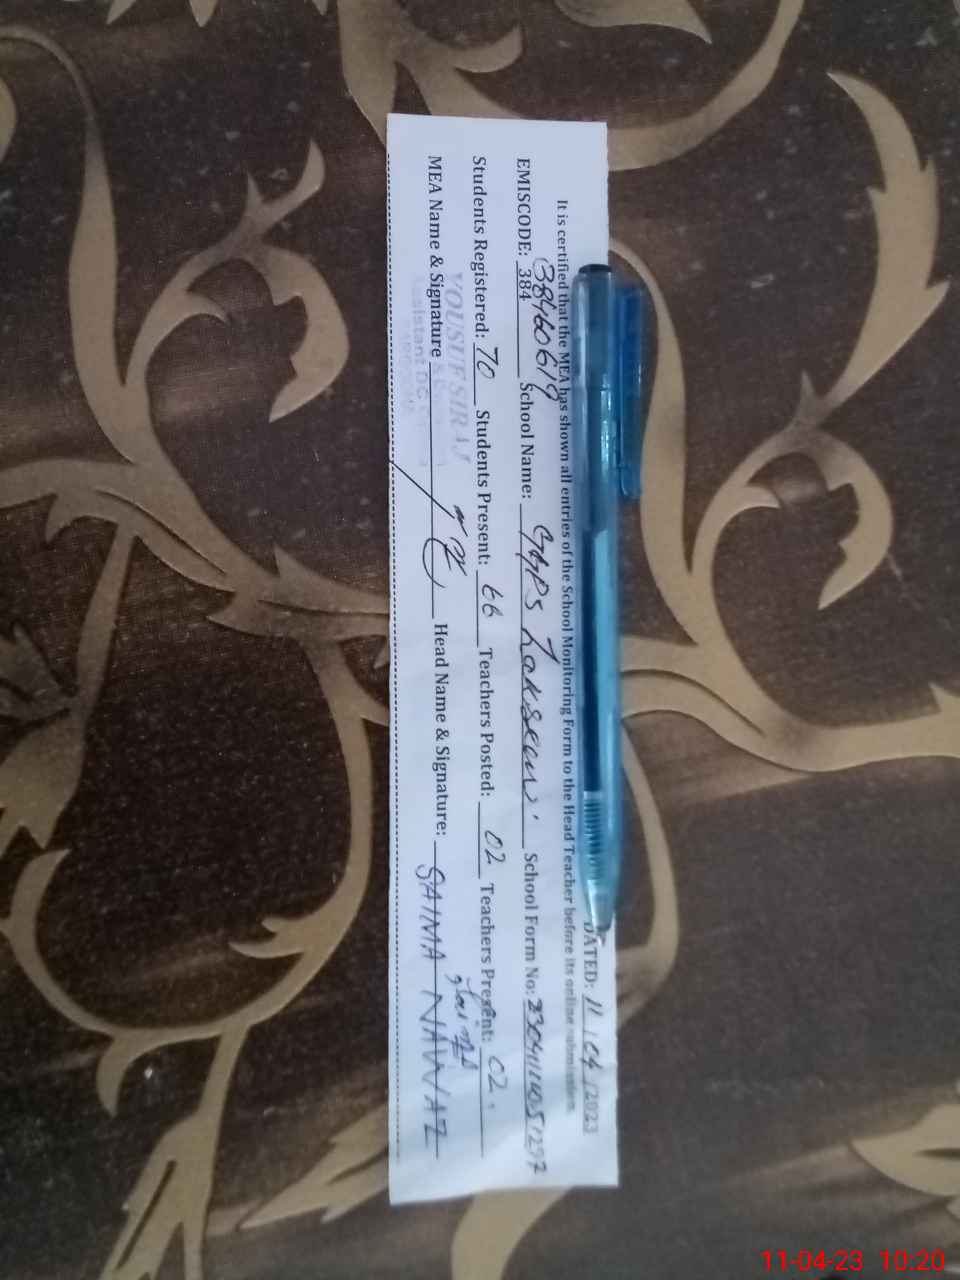 DATED: 11/04/2023
It is certified that the MEA has shown all entries of the School Monitoring Form to the Head Teacher before its online submission.
EMISCODE: 384 38460619 School Name: GGPS School Form No:
Students Registered: 70 Students Present: 66 Teachers Posted: 02 Teachers Present: 02
YOUSUF SIRAJ
MEA Name & Signature Head Name & Signature: SAIMA NAWAZ
Assistant
11-04-23 10:20